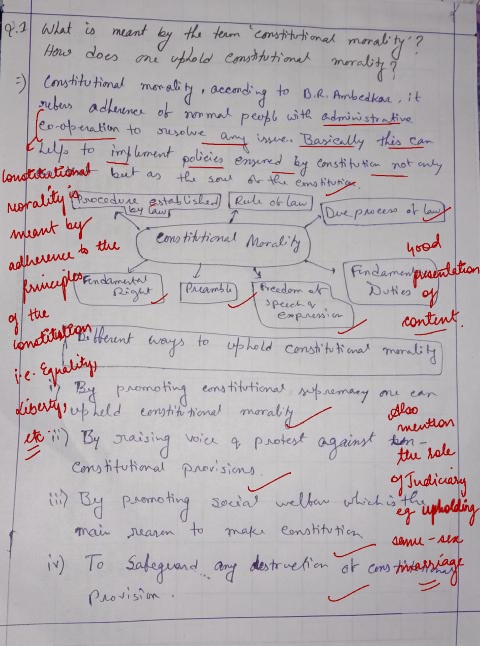 Q.1 What is meant by the term 'constitutional morality'?
How does one uphold constitutional morality?
=) Constitutional morality, according to B.R. Ambedkar, it
refers adherence of normal people with administrative
co-operation to resolve any issue. Basically this can
helps to implement policies ensured by constitution not only
but as the soul of the constitution.
Constitutional
morality is
meant by
adherence to the
principles
of the
constitution
i.e. Equality,
Liberty,
etc
Procedure established
by law
Rule of law
Due process of law
Constitutional Morality
Fundamental
Right
Preamble
Freedom of
speech &
expression
Fundamental
Duties
Good
presentation
of
content.
Different ways to uphold constitutional morality
i) By promoting constitutional supremacy one can
upheld constitutional morality
ii) By raising voice & protest against
constitutional provisions.
iii) By promoting social welfare which is the
main reason to make constitution
iv) To safeguard any destruction of constitutional
provision.
Also
mention
the role
of Judiciary
eg upholding
same-sex
marriage